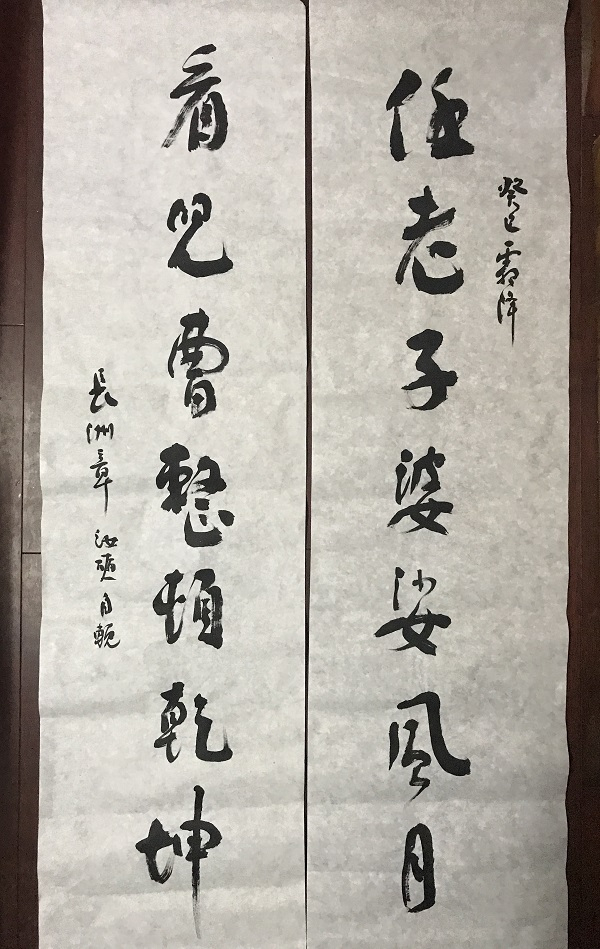 癸巳霜降
任老子婆娑風月
看兒曹整頓乾坤
長洲章汝奭自輓